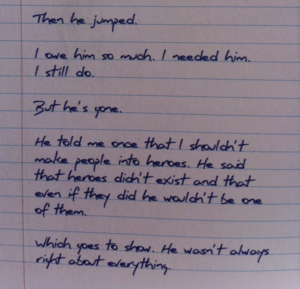 Then he jumped.
I owe him so much. I needed him.
I still do.
But he's gone.
He told me once that I shouldn't
make people into heroes. He said
that heroes didn't exist and that
even if they did he wouldn't be one
of them.
Which goes to show. He wasn't always
right about everything.